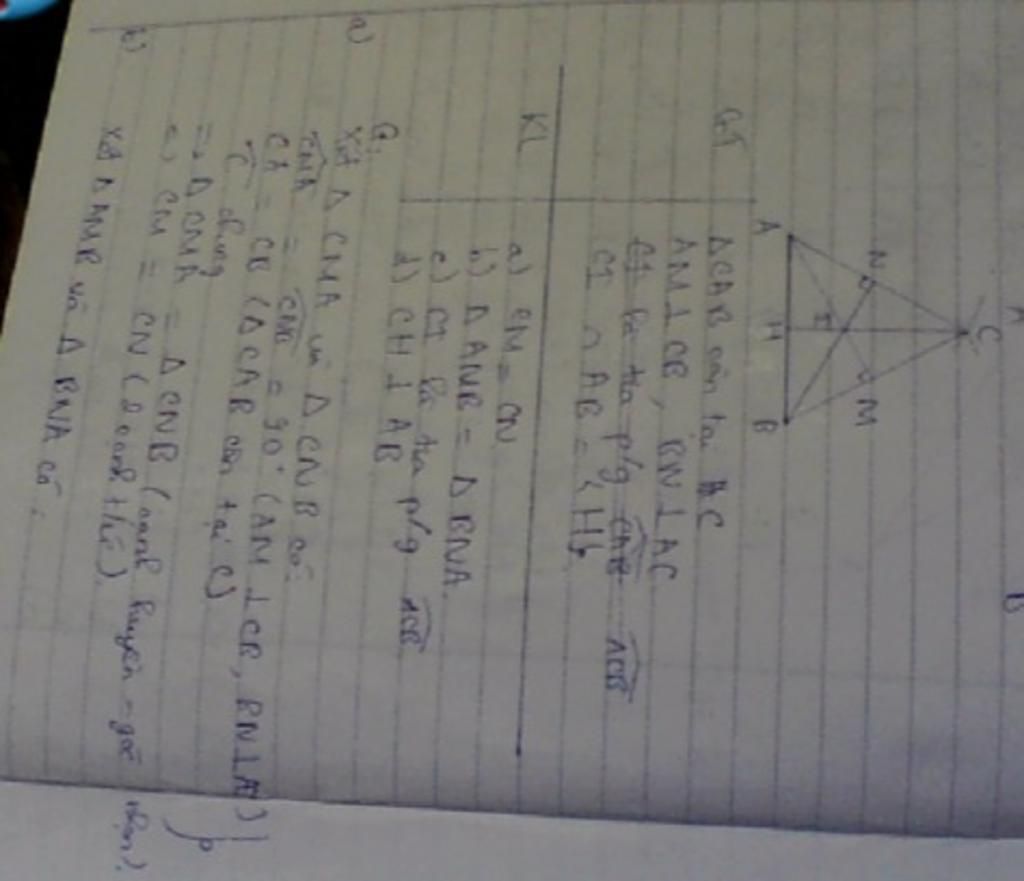 A
B
C
N
M
I
A
H
B
GT
ΔCAB cân tại C
AM ⊥ CB, BN ⊥ AC
CI ∩ AB = {H}
KL
a) CM = CN
b) ΔANB = ΔBNA
c) CI là tia p/g ACB
d) CH ⊥ AB
G.
a)
Xét Δ CMA và Δ CNB có:
CMA = CNB = 90° (AM ⊥ CB, BN ⊥ AC)
CA = CB (Δ CAB cân tại C)
C chung
=> Δ CMA = Δ CNB (cạnh huyền - góc nhọn).
=> CM = CN (2 cạnh t/ứ).
b)
Xét Δ AMB và Δ BNA có: